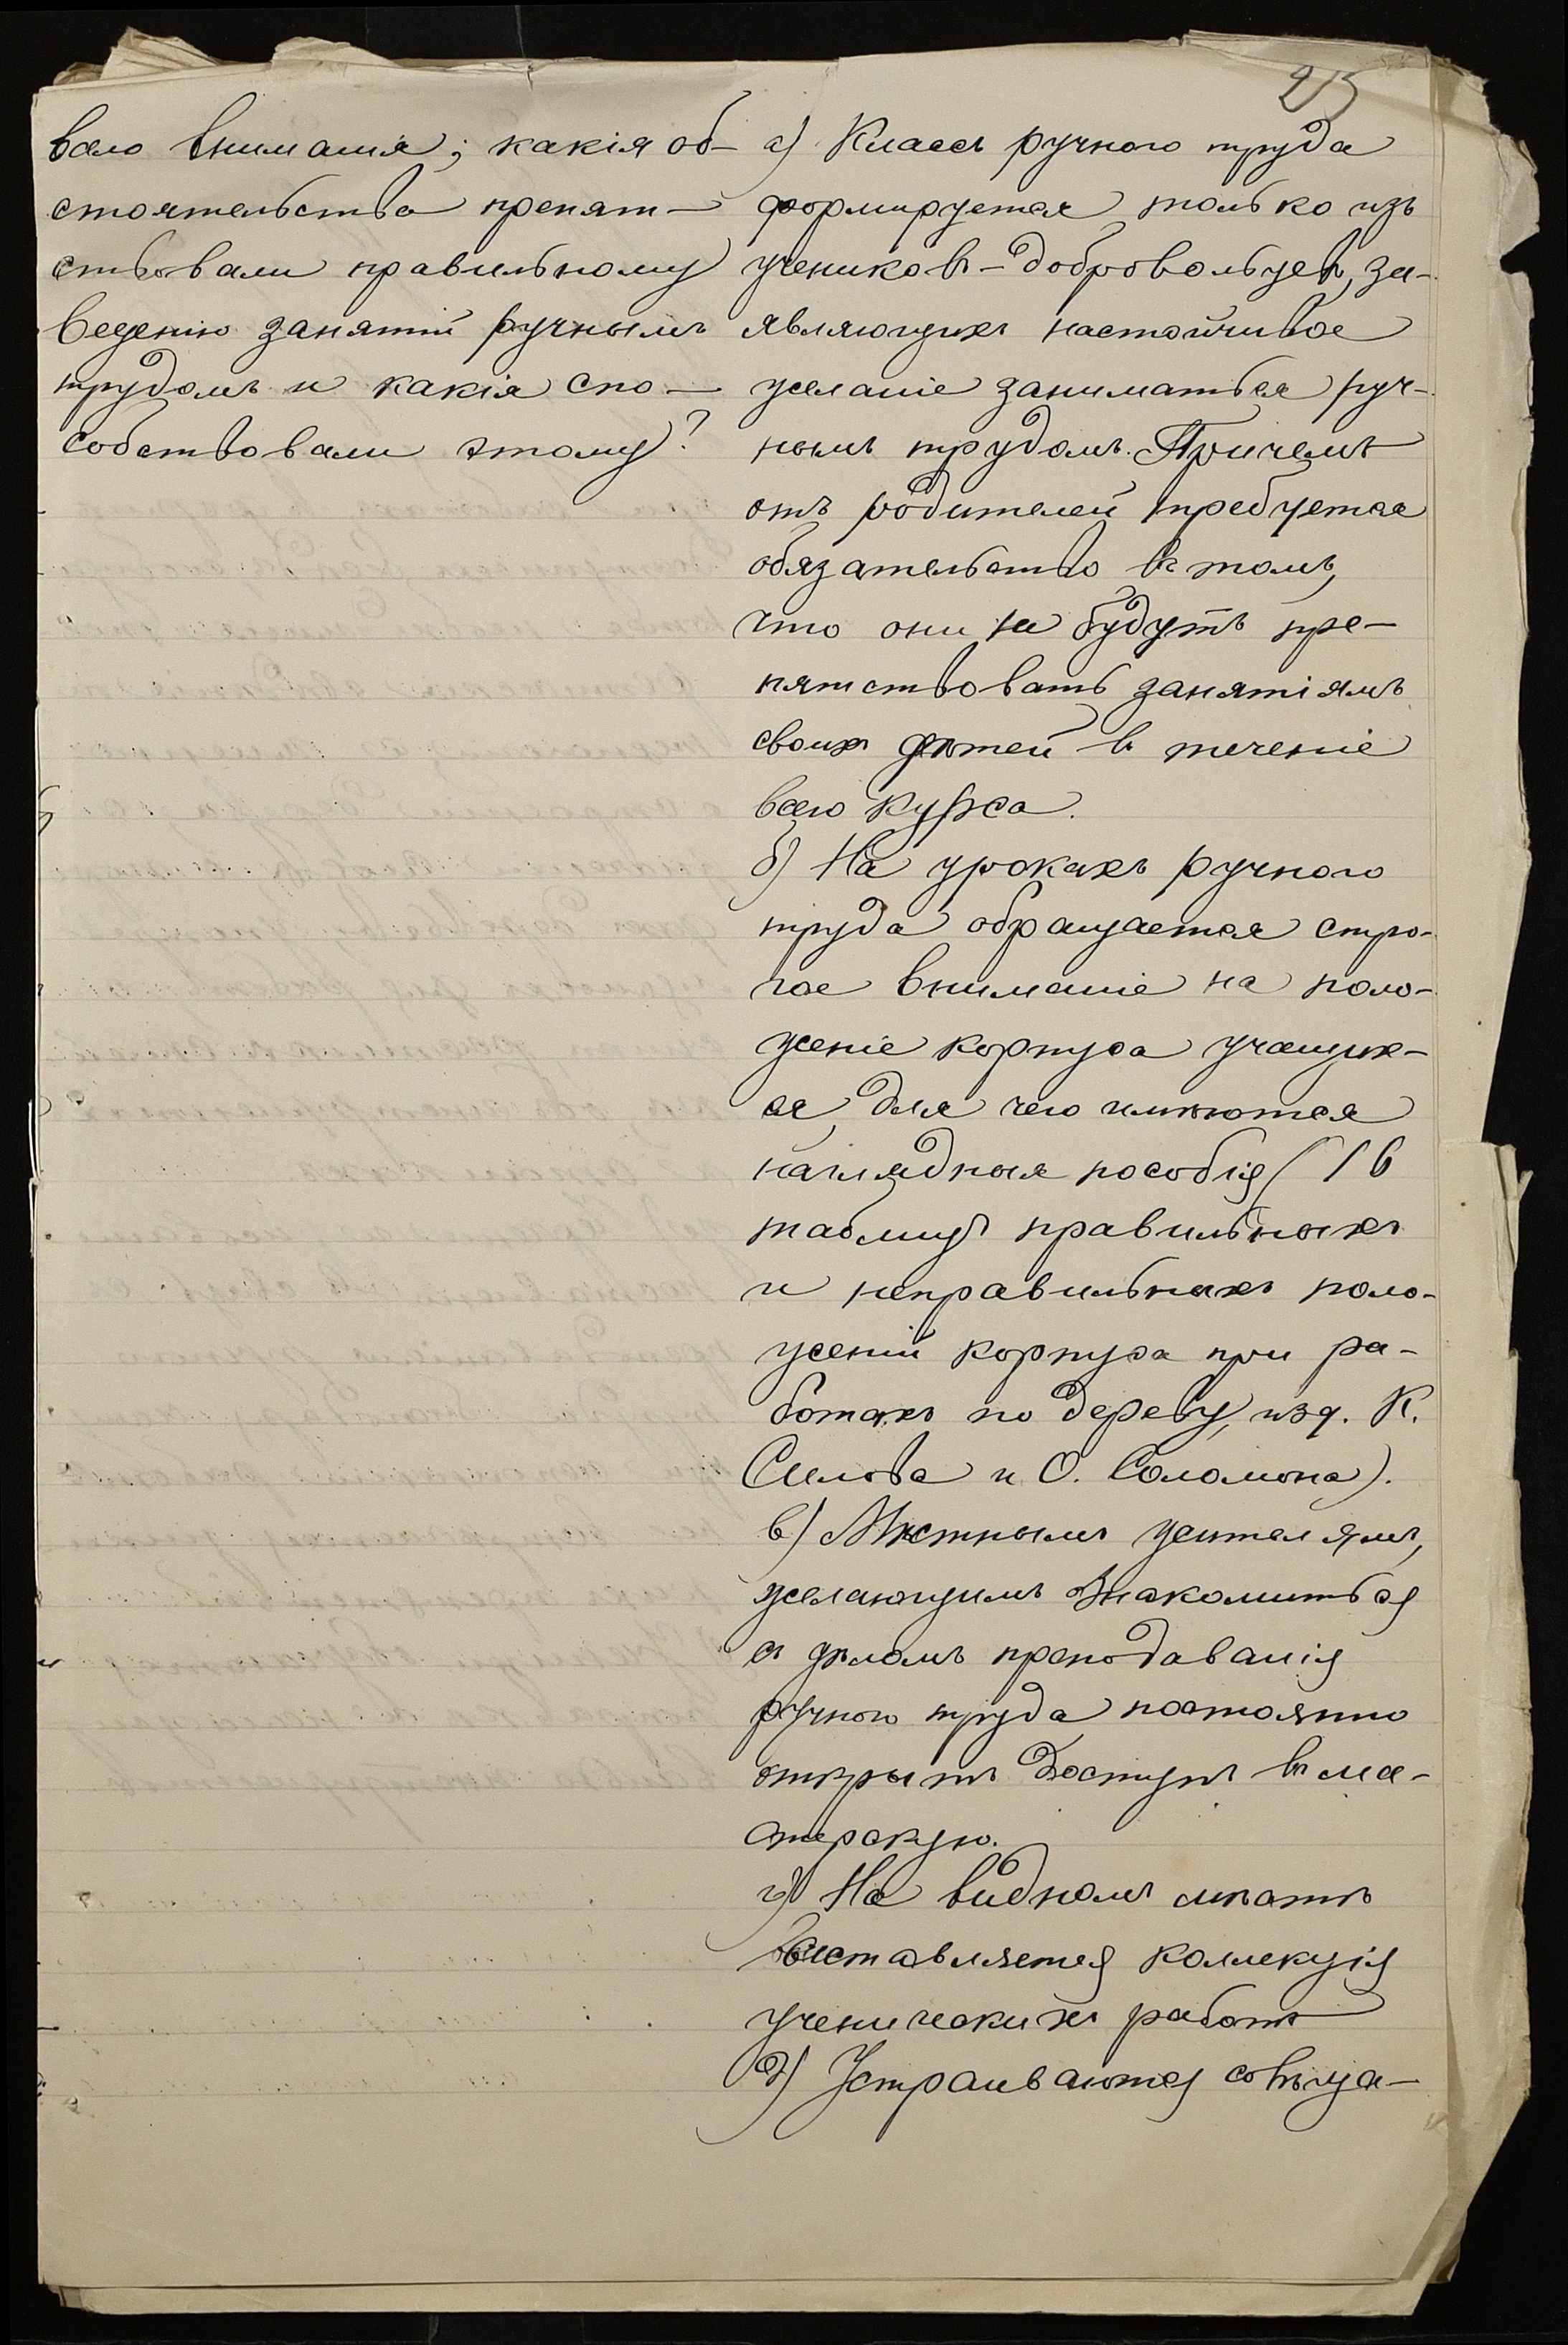 25
вало вниманія; какія об-
стоятельства препят-
ствовали правильному
веденію занятій ручнымъ
трудомъ и какія спо-
собствовали этому?
а) Классъ ручного труда
формируется только изъ
учениковъ-добровольцевъ, за-
являющихъ настойчивое
желаніе заниматься руч-
нымъ трудомъ. Причемъ
отъ родителей требуется
обязательство въ томъ,
что они не будутъ пре-
пятствовать занятіямъ
своихъ дѣтей въ теченіе
всего курса.
б) На урокахъ ручного
труда обращается стро-
гое вниманіе на поло-
женіе корпуса учащих-
ся, для чего имѣются
наглядныя пособія (16
таблицъ правильныхъ
и неправильныхъ поло-
женій корпуса при ра-
ботахъ по дереву, изд. К.
Силова и О. Соломона).
в) Мѣстнымъ учителямъ,
желающимъ ознакомиться
съ дѣломъ преподаванія
ручного труда постоянно
открытъ доступъ въ ма-
стерскую.
г) На видномъ мѣстѣ
выставляется коллекція
ученическихъ работъ
д) Устраиваются совѣща-